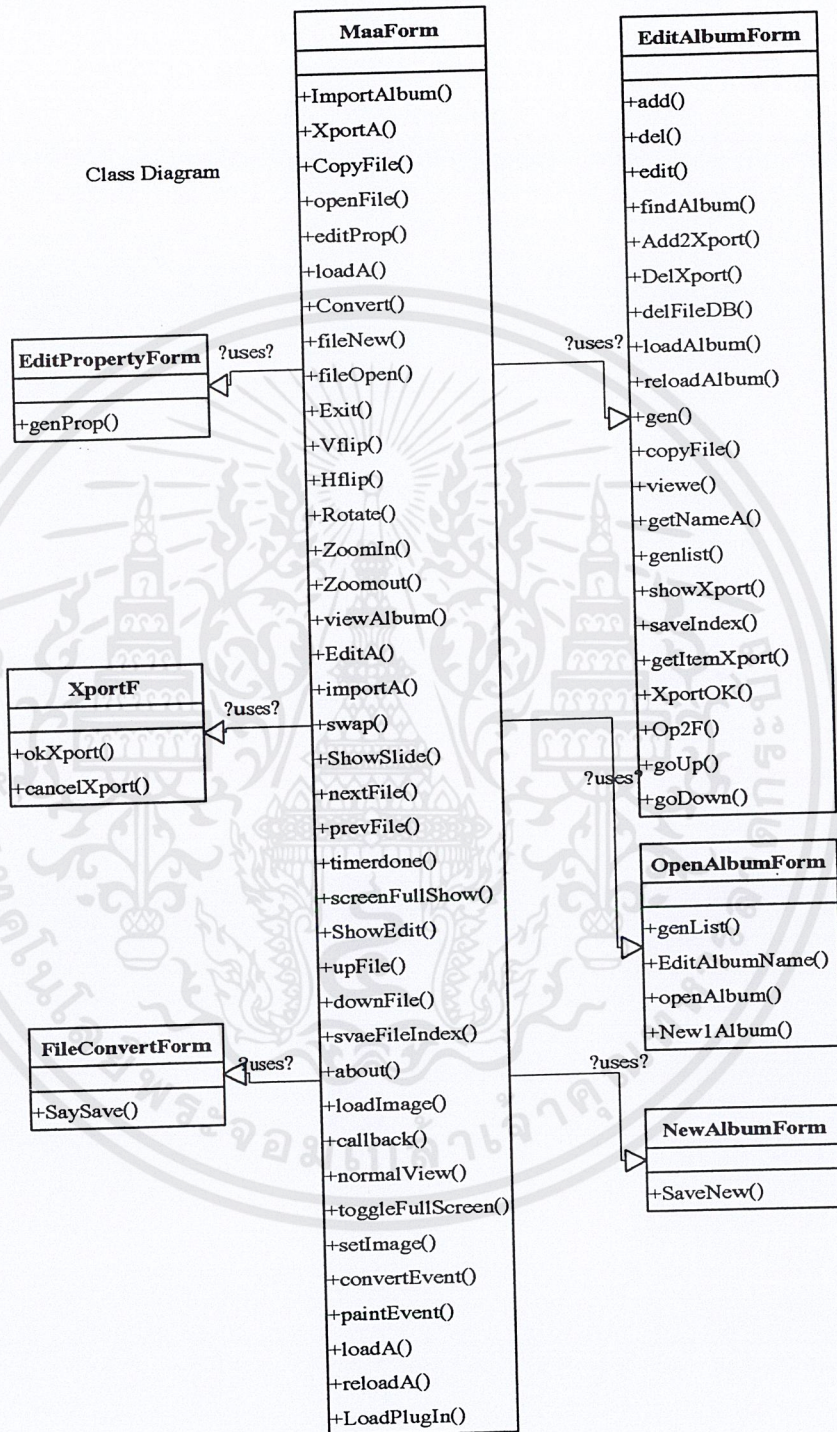 Class Diagram
MaaForm
+ImportAlbum()
+XportA()
+CopyFile()
+openFile()
+editProp()
+loadA()
+Convert()
+fileNew()
+fileOpen()
+Exit()
+Vflip()
+Hflip()
+Rotate()
+ZoomIn()
+Zoomout()
+viewAlbum()
+EditA()
+importA()
+swap()
+ShowSlide()
+nextFile()
+prevFile()
+timerdone()
+screenFullShow()
+ShowEdit()
+upFile()
+downFile()
+svaeFileIndex()
+about()
+loadImage()
+callback()
+normalView()
+toggleFullScreen()
+setImage()
+convertEvent()
+paintEvent()
+loadA()
+reloadA()
+LoadPlugIn()
EditPropertyForm
+genProp()
?uses?
XportF
+okXport()
+cancelXport()
?uses?
FileConvertForm
+SaySave()
?uses?
EditAlbumForm
+add()
+del()
+edit()
+findAlbum()
+Add2Xport()
+DelXport()
+delFileDB()
+loadAlbum()
+reloadAlbum()
+gen()
+copyFile()
+viewe()
+getNameA()
+genlist()
+showXport()
+saveIndex()
+getItemXport()
+XportOK()
+Op2F()
+goUp()
+goDown()
?uses?
OpenAlbumForm
+genList()
+EditAlbumName()
+openAlbum()
+New1Album()
?uses?
NewAlbumForm
+SaveNew()
?uses?
พระจอมเกล้าเจ้าคุณทหาร